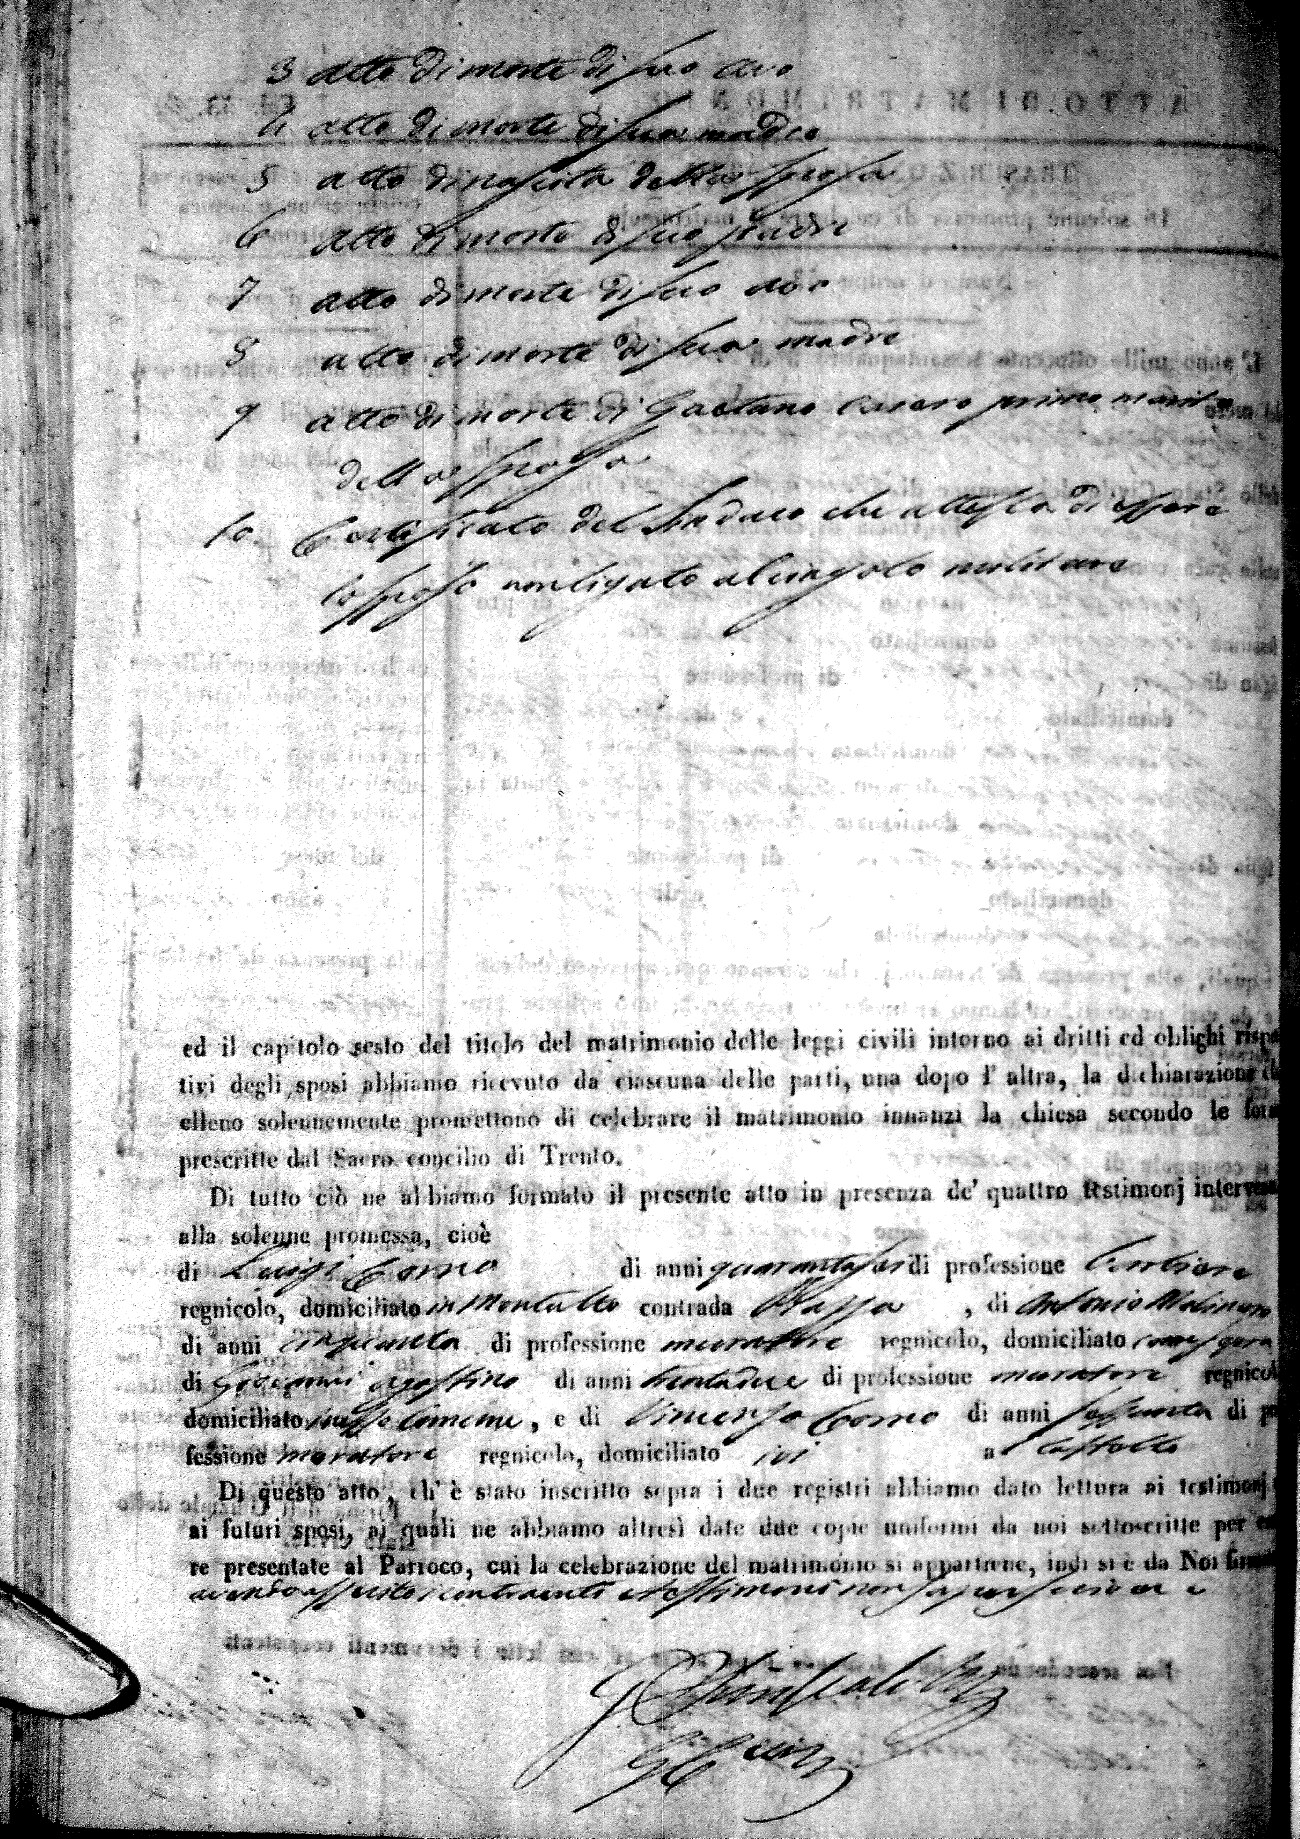 3 atto di morte di suo avo
4 atto di morte di sua madre
5 atto di nascita della sposa
6 atto di morte di suo padre
7 atto di morte di suo avo
8 atto di morte di sua madre
9 atto di morte di Gaetano primo marito
della sposa
10. Certificato del Sindaco che attesta di essere
lo sposo non ligato al cingolo militare
ed il capitolo sesto del titolo del matrimonio delle leggi civili intorno ai dritti ed oblighi rispe
tivi degli sposi abbiamo ricevuto da ciascuna delle parti, una dopo l' altra, la dichiarazione ch
elleno solennemente promettono di celebrare il matrimonio innanzi la chiesa secondo le for
prescritte dal Sacro concilio di Trento.
Di tutto ciò ne abbiamo formato il presente atto in presenza de' quattro testimonj interven
alla solenne promessa, cioè
di Luigi Como di anni quarantasei di professione
regnicolo, domiciliato in Montalto contrada Piazza , di Antonio Molinaro
di anni cinquanta di professione muratore regnicolo, domiciliato come sopra
di Giovanni Agostino di anni trentadue di professione muratore regnicol
domiciliato nesso comune, e di Vincenzo Como di anni sessanta di p
fessione muratore regnicolo, domiciliato ivi a
Di questo atto, ch' è stato inscritto sopra i due registri abbiamo dato lettura ai testimonj
ai futuri sposi, ai quali ne abbiamo altresì date due copie uniformi da noi sottoscritte per es
re presentate al Parroco, cui la celebrazione del matrimonio si appartiene, indi si è da Noi firm
avendo asserito i contraenti e testimoni non saper scrivere